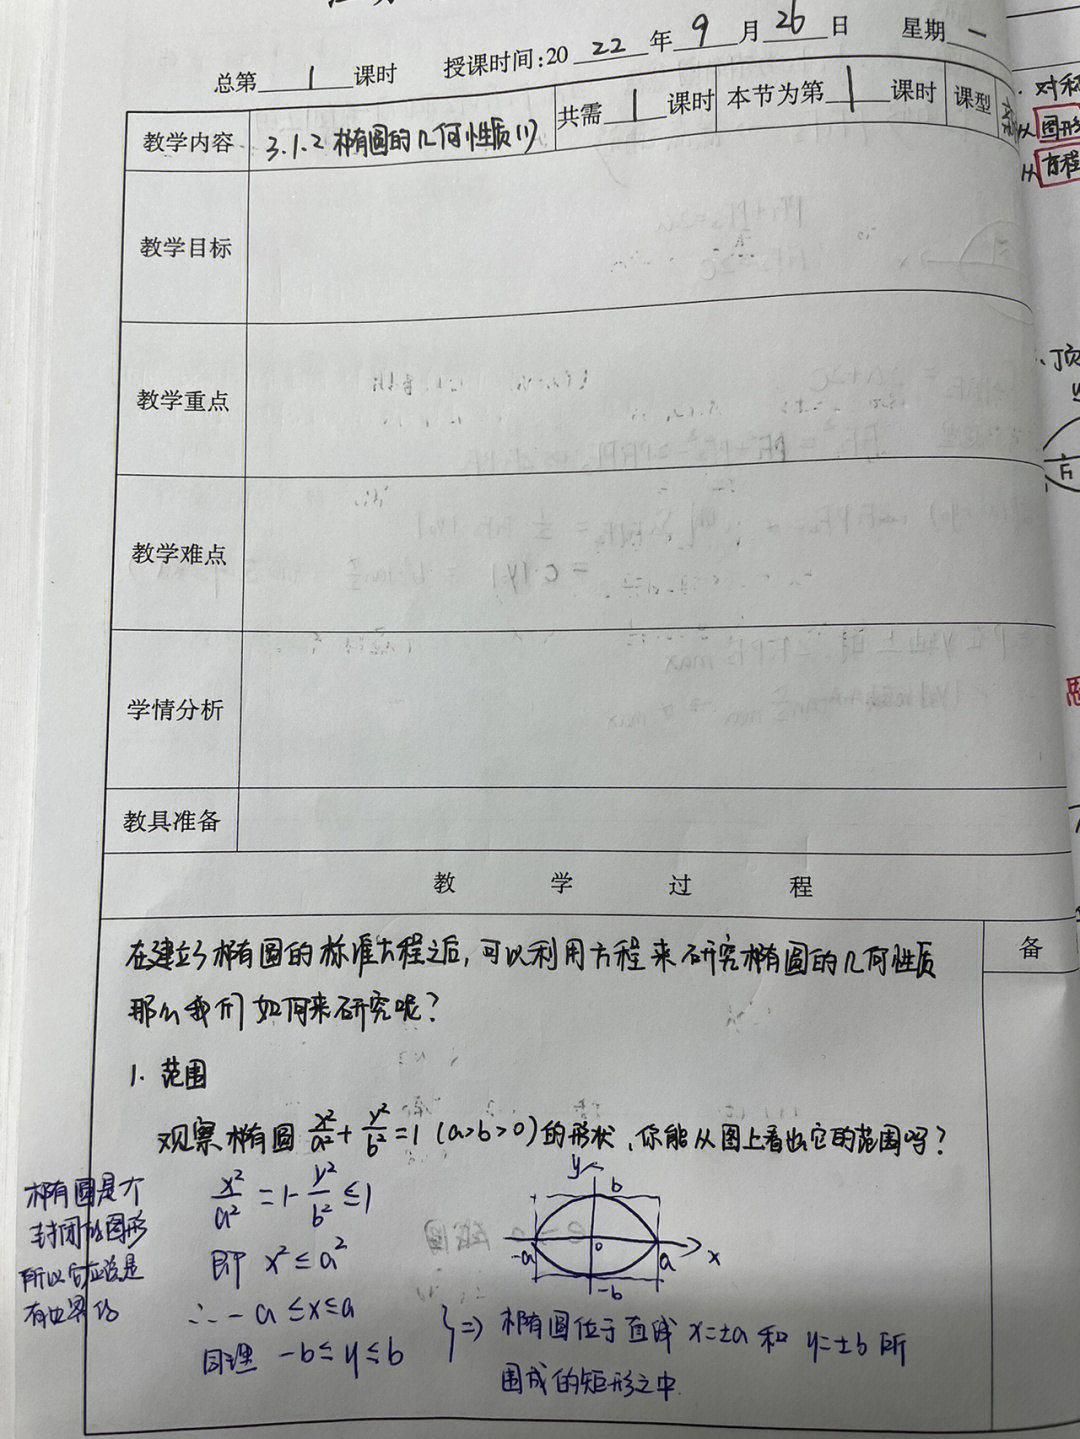 总第 1 课时 授课时间:20 22 年 9 月 26 日 星期 一
教学内容 3.1.2 椭圆的几何性质(1) 共需 1 课时 本节为第 1 课时 课型
教学目标
教学重点
教学难点
学情分析
教具准备
教 学 过 程
备
在建立了椭圆的标准方程之后,可以利用方程来研究椭圆的几何性质
那么我们如何来研究呢?
1. 范围
观察椭圆 x²/a² + y²/b² = 1 (a>b>0) 的形状,你能从图上看出它的范围吗?
椭圆是个
封闭的图形
所以它应该是
有边界的
x²/a² = 1 - y²/b² ≤ 1
即 x² ≤ a²
∴ -a ≤ x ≤ a
同理 -b ≤ y ≤ b
y b
-a 0 a x
-b
} ⇒ 椭圆位于直线 x=±a 和 y=±b 所
围成的矩形之中.
对称
从 图形
从 方程
顶
F₁